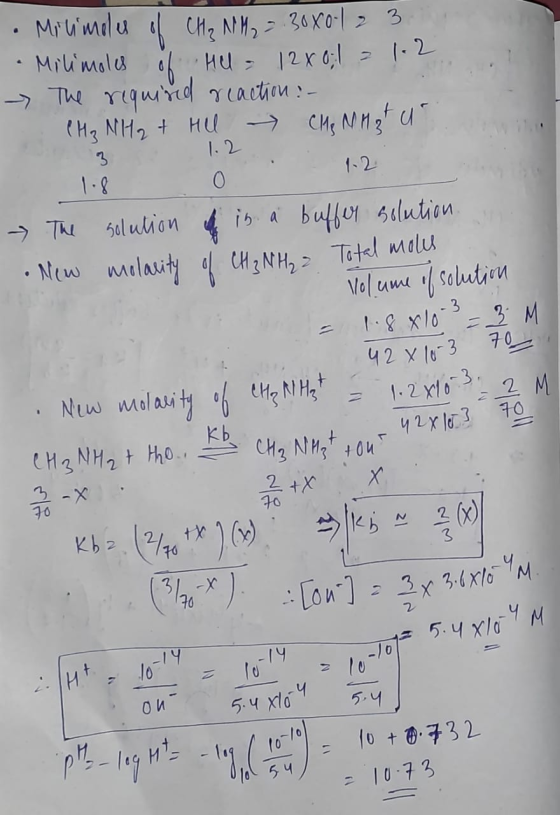 • Milimoles of CH3NH2 = 30×0.1 = 3
• Milimoles of HCl = 12×0.1 = 1.2
→ The required reaction:-
CH3NH2 + HCl → CH3NH3+ Cl-
3 1.2
1.8 0 1.2
→ The solution is a buffer solution.
• New molarity of CH3NH2 = Total moles / Volume of solution
= 1.8 ×10^-3 / 42 ×10^-3 = 3/70 M
• New molarity of CH3NH3+ = 1.2×10^-3 / 42×10^-3 = 2/70 M
CH3NH2 + H2O ⇌ Kb CH3NH3+ + OH-
3/70 - x 2/70 + x x
Kb = (2/70 + x)(x) / (3/70 - x) ⇒ Kb ≃ 2/3 (x)
∴ [OH-] = 3/2 × 3.6×10^-4 M
= 5.4 ×10^-4 M
∴ H+ = 10^-14 / OH- = 10^-14 / 5.4 ×10^-4 = 10^-10 / 5.4
pH = -log H+ = -log10 (10^-10 / 5.4) = 10 + 0.732
= 10.73